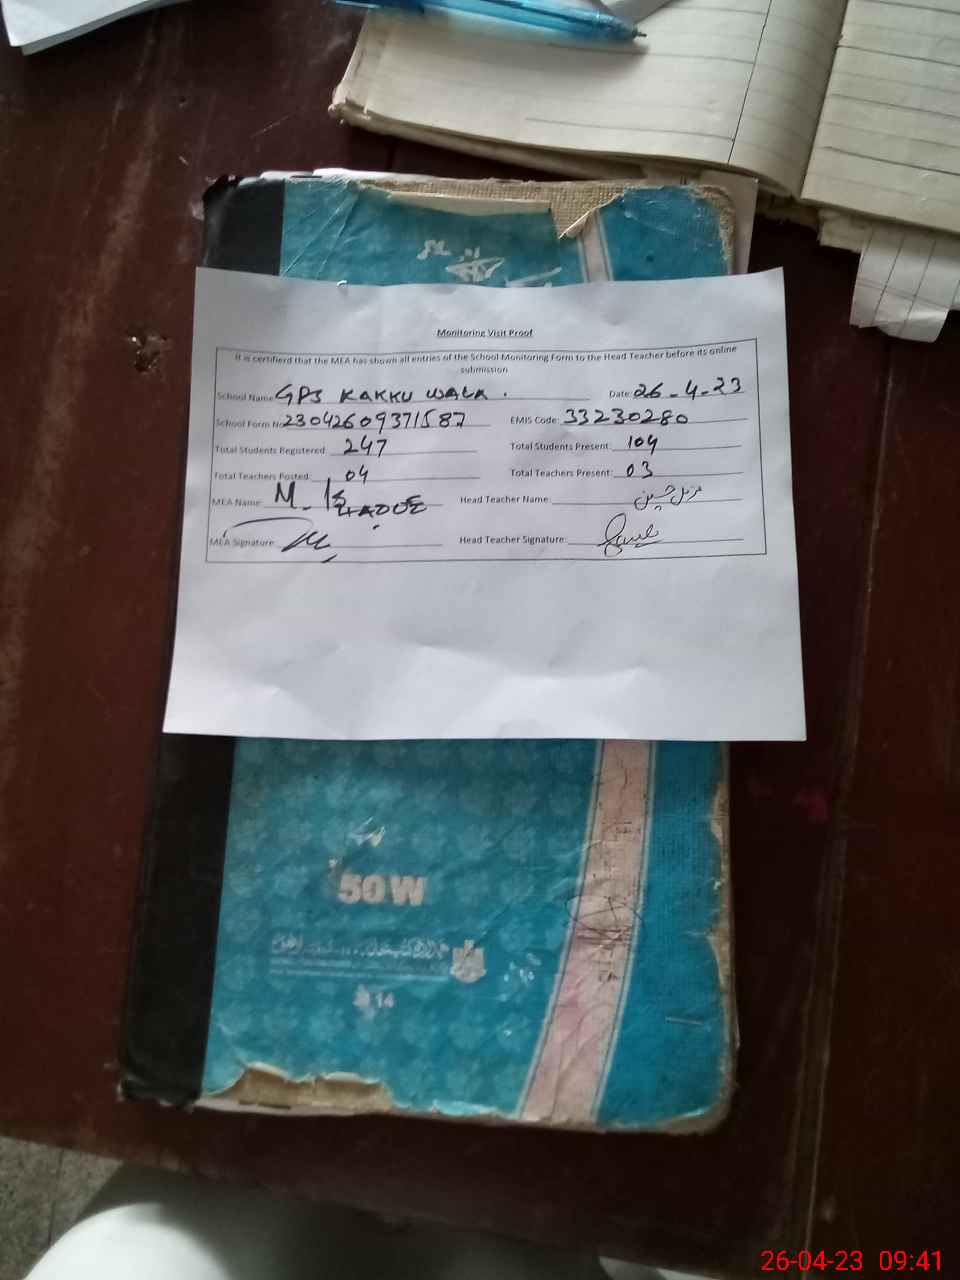 Monitoring Visit Proof
It is certifierd that the MEA has shown all entries of the School Monitoring Form to the Head Teacher before its online
submission
School Name: GPS KAKKU WALA. Date: 26-4-23
School Form No: 23042609371587 EMIS Code: 33230280
Total Students Registered: 247 Total Students Present: 104
Total Teachers Posted: 04 Total Teachers Present: 03
MEA Name: M. Head Teacher Name: مزمل حسین
MEA Signature: Head Teacher Signature:
50W
14
26-04-23 09:41